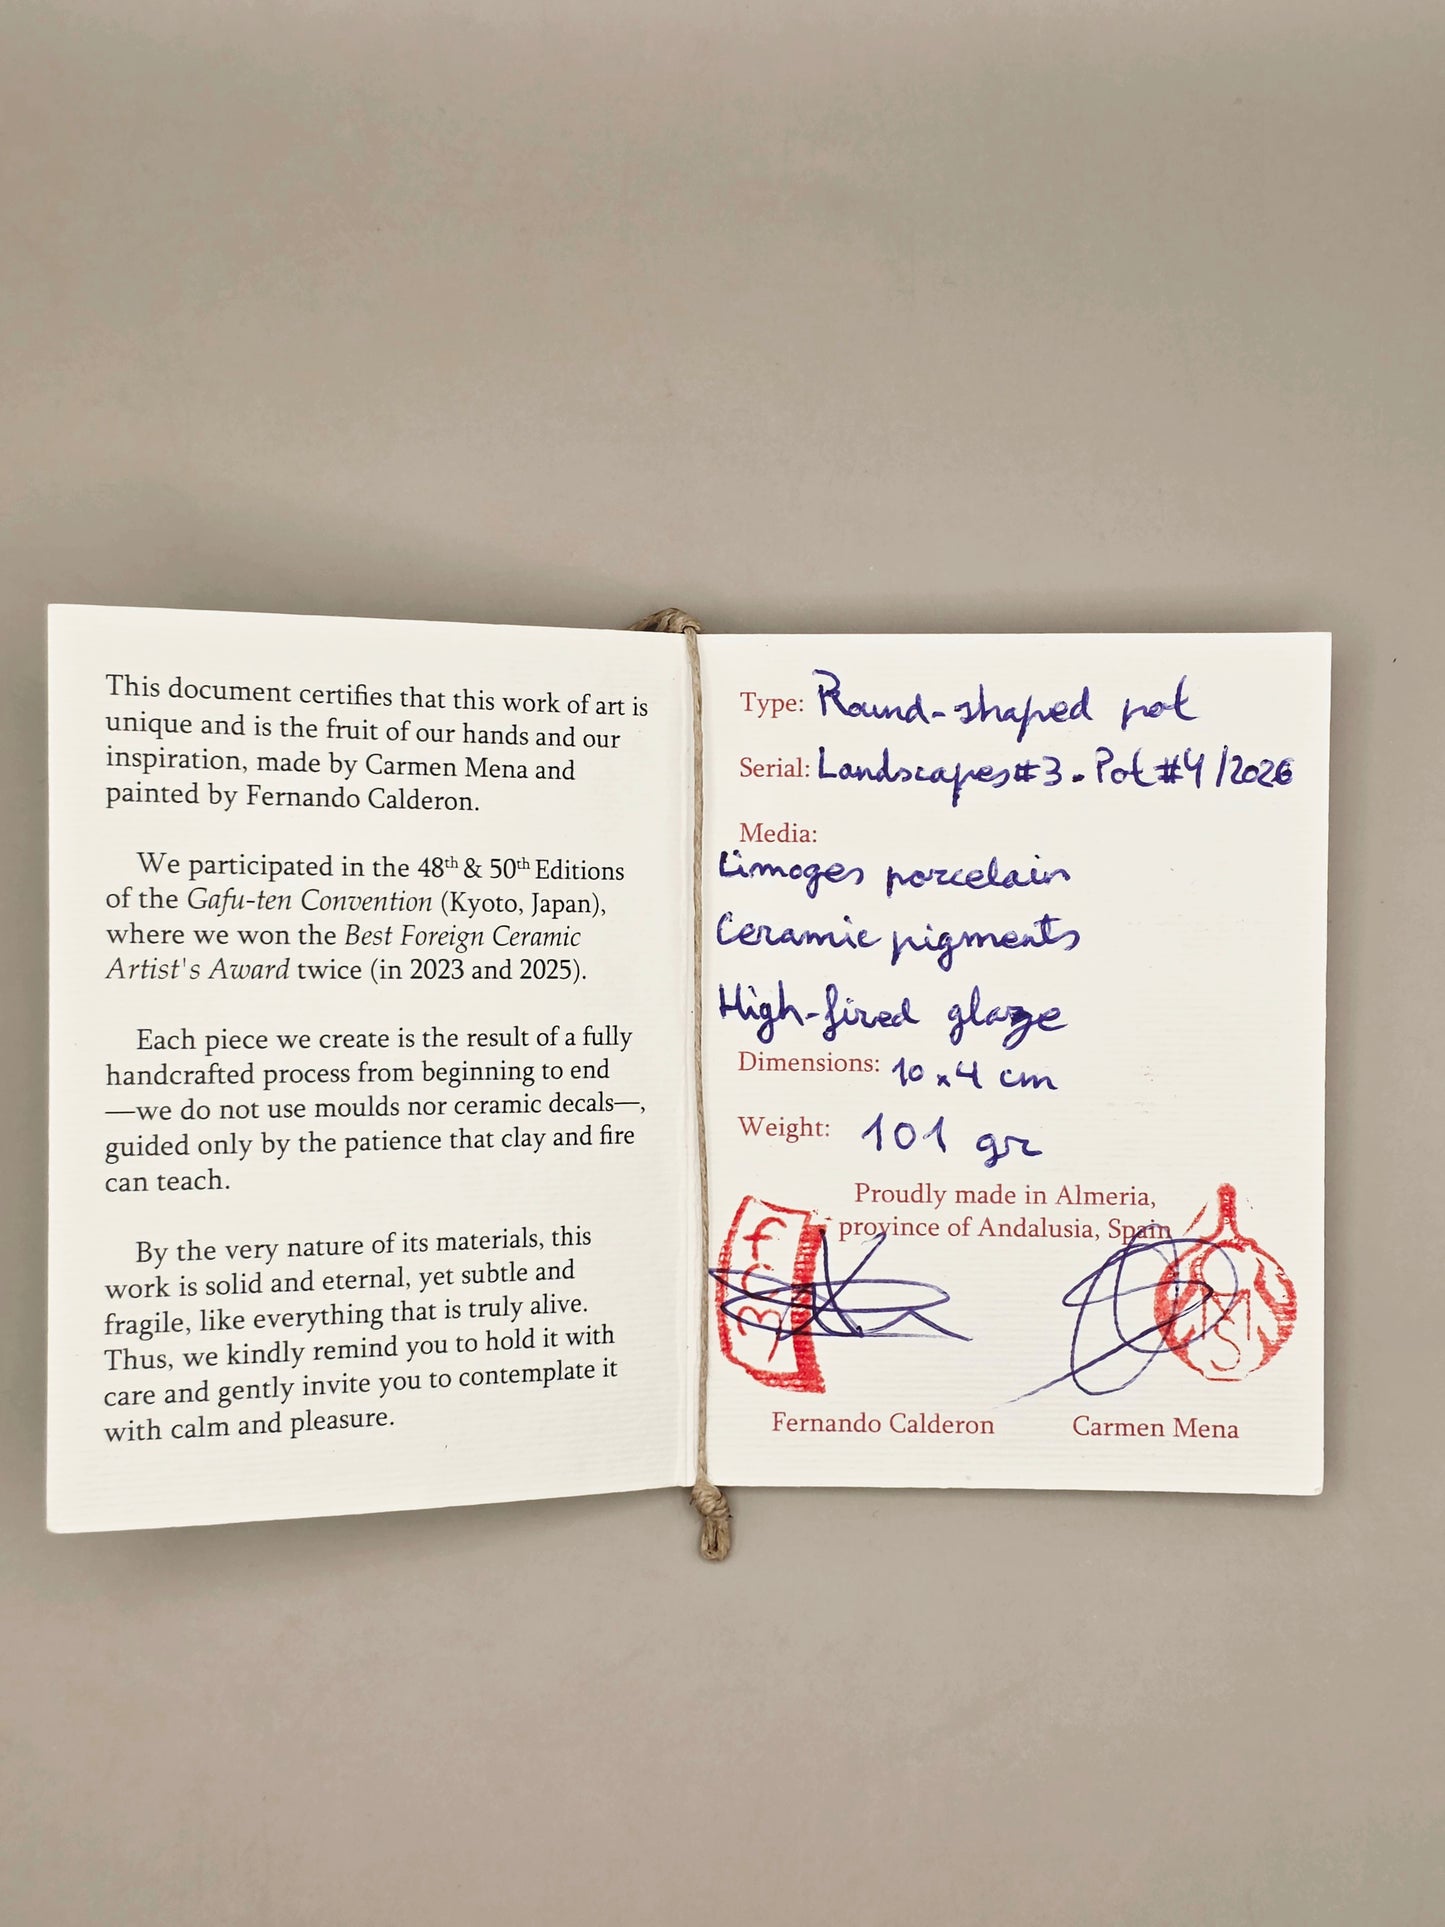 This document certifies that this work of art is
unique and is the fruit of our hands and our
inspiration, made by Carmen Mena and
painted by Fernando Calderon.
We participated in the 48th & 50th Editions
of the Gafu-ten Convention (Kyoto, Japan),
where we won the Best Foreign Ceramic
Artist's Award twice (in 2023 and 2025).
Each piece we create is the result of a fully
handcrafted process from beginning to end
—we do not use moulds nor ceramic decals—,
guided only by the patience that clay and fire
can teach.
By the very nature of its materials, this
work is solid and eternal, yet subtle and
fragile, like everything that is truly alive.
Thus, we kindly remind you to hold it with
care and gently invite you to contemplate it
with calm and pleasure.
Type: Round-shaped pot
Serial: Landscapes#3. Pot#4/2026
Media:
Limoges porcelain
Ceramic pigments
High-fired glaze
Dimensions: 10x4 cm
Weight: 101 gr
Proudly made in Almeria,
province of Andalusia, Spain
Fernando Calderon
Carmen Mena